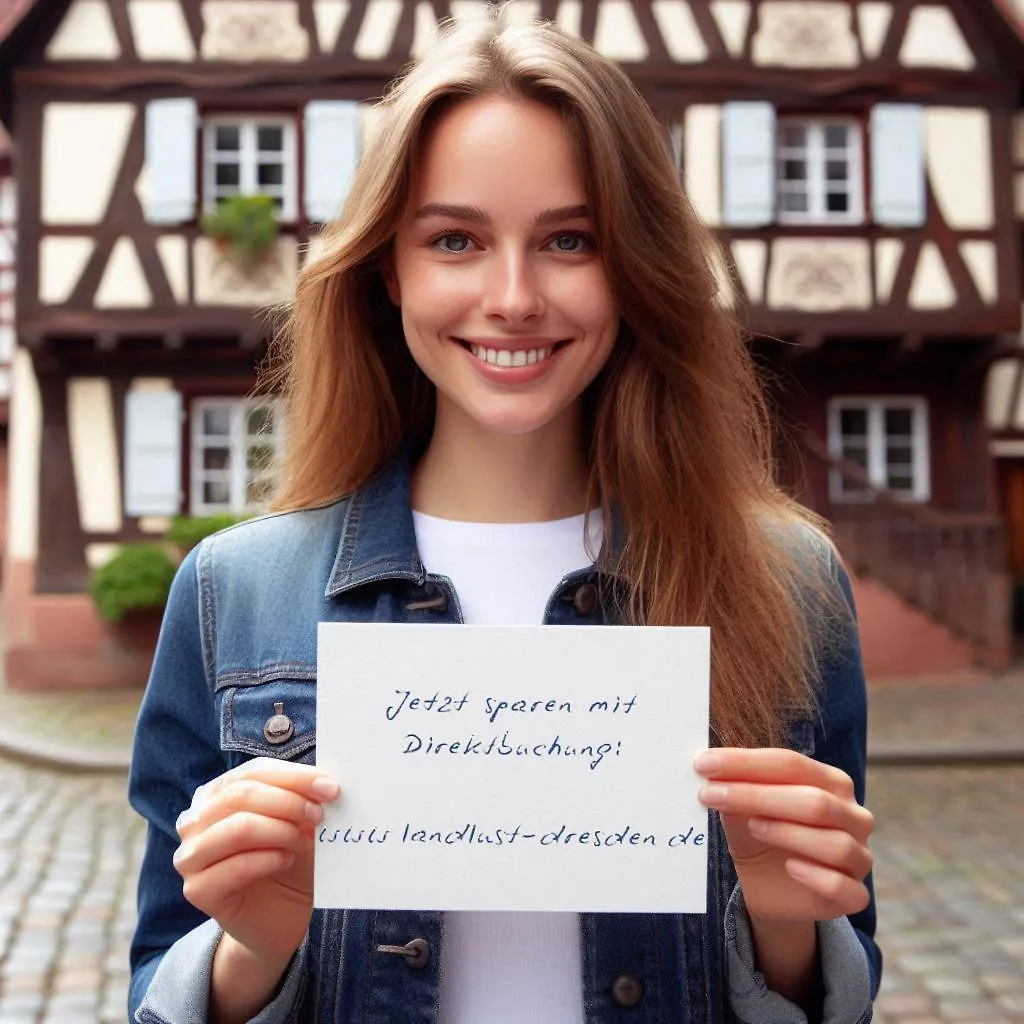 Jetzt sparen mit
Direktbuchung!
www landlust-dresden de